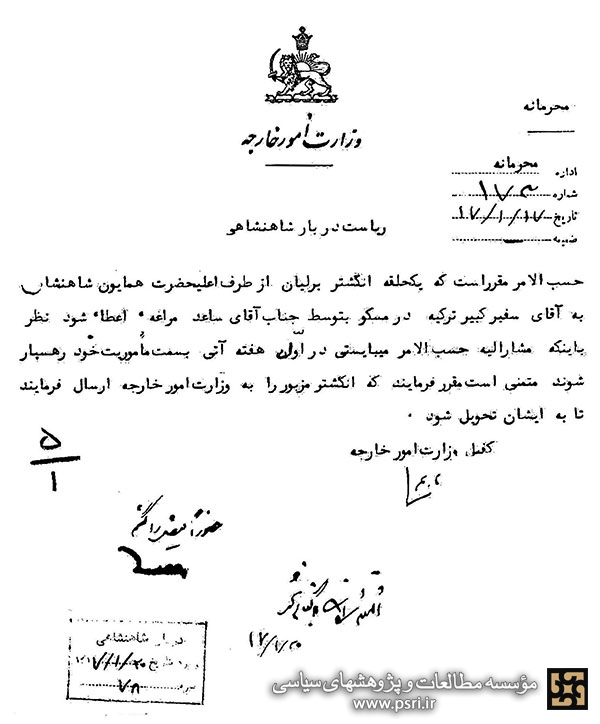 وزارت امور خارجه
محرمانه
اداره محرمانه
شماره ۱۷۳
تاریخ ۱۷/۱/۱۷
ضمیمه
ریاست دربار شاهنشاهی
حسب الامر مقرر است که یکحلقه انگشتر برلیان از طرف اعلیحضرت همایون شاهنشاه
به آقای سفیر کبیر ترکیه در مسکو بتوسط جناب آقای ساعد مراغه اعطا شود نظر
باینکه مشارالیه حسب الامر میبایستی در اول هفته آتی بسمت مأموریت خود رهسپار
شوند متمنی است مقرر فرمایند که انگشتر مزبور را به وزارت امور خارجه ارسال فرمایند
تا به ایشان تحویل شود .
کفیل وزارت امور خارجه
۵
۱
دربار شاهنشاهی
تاریخ ۲۰/۱/۱۷
۷۸
مؤسسه مطالعات و پژوهشهای سیاسی
www.psri.ir